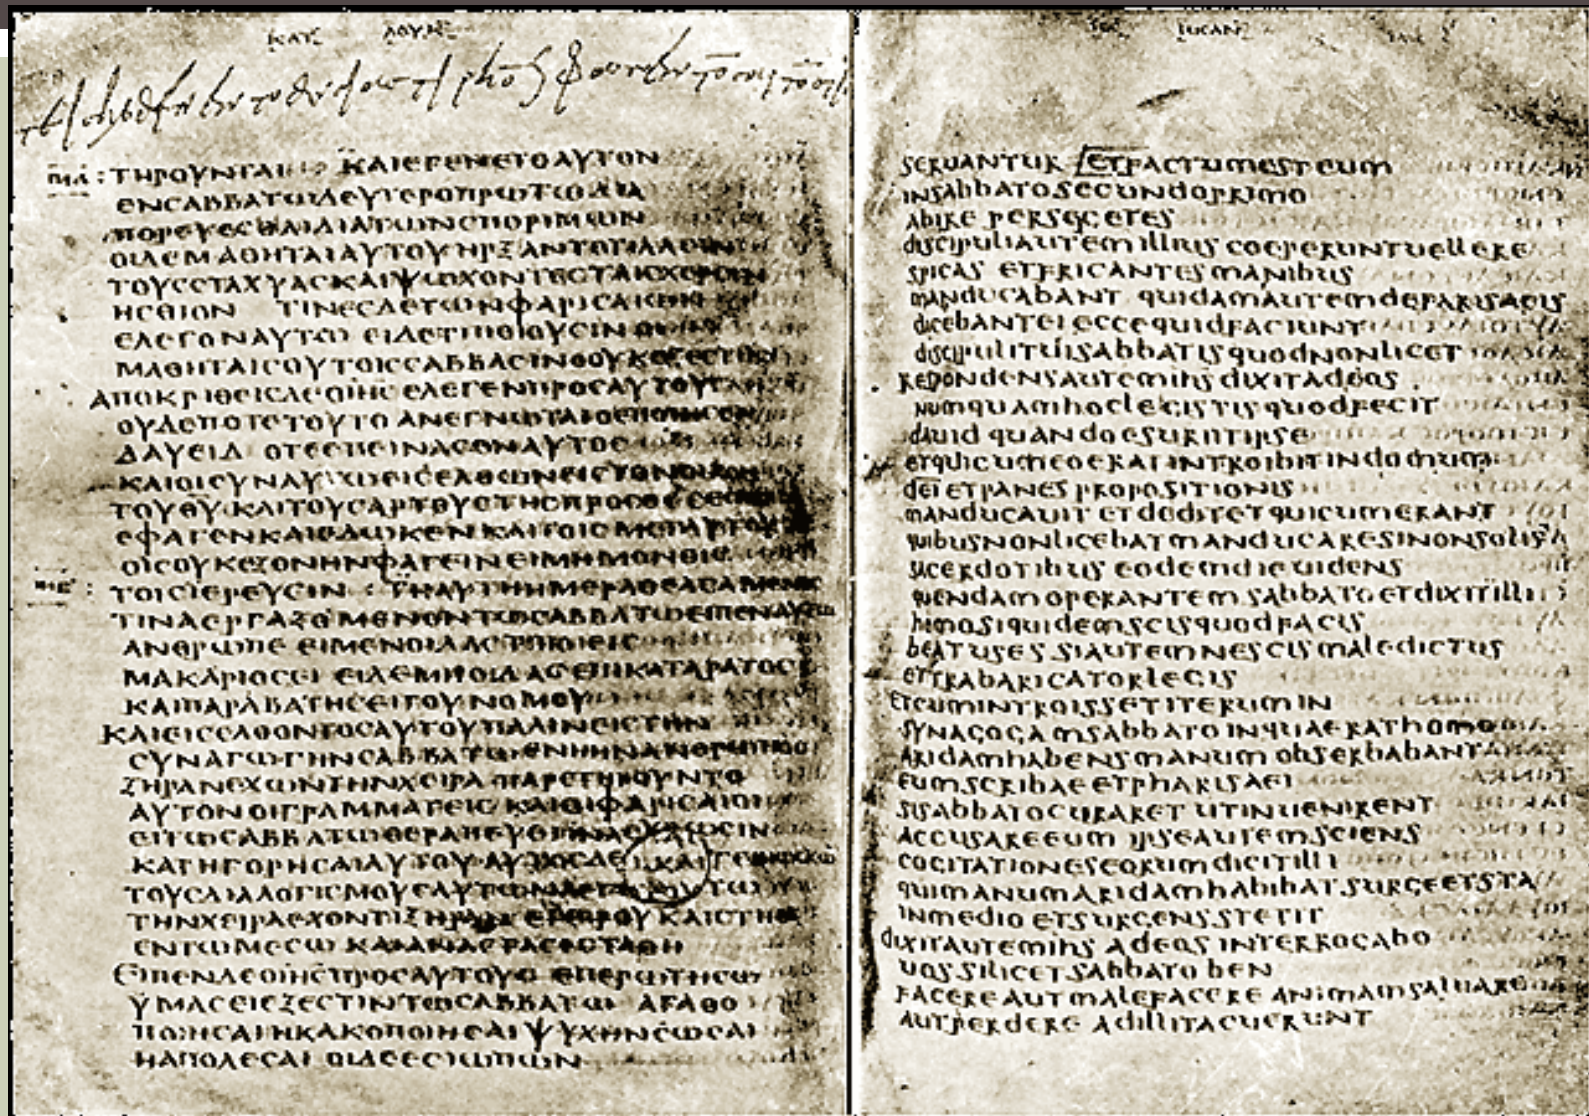 ΚΑΤ ΛΟΥΚ
ΤΗΡΟΥΝΤΑΙ ΚΑΙΕΓΕΝΕΤΟΑΥΤΟΝ
ΕΝϹΑΒΒΑΤΩΔΕΥΤΕΡΟΠΡΩΤΩΔΙΑ
ΠΟΡΕΥΕϹΘΑΙΔΙΑΤΩΝϹΠΟΡΙΜΩΝ
ΟΙΔΕΜΑΘΗΤΑΙΑΥΤΟΥΗΡΞΑΝΤΟΤΙΛΛΕΙΝ
ΤΟΥϹϹΤΑΧΥΑϹΚΑΙΨΩΧΟΝΤΕϹΤΑΙϹΧΕΡϹΙΝ
ΗϹΘΙΟΝ ΤΙΝΕϹΔΕΤΩΝΦΑΡΙϹΑΙΩΝ
ΕΛΕΓΟΝΑΥΤΩ ΕΙΔΕΤΙΠΟΙΟΥϹΙΝΟΙ
ΜΑΘΗΤΑΙϹΟΥΤΟΙϹϹΑΒΒΑϹΙΝΟΟΥΚΕΞΕϹΤΙΝ
ΑΠΟΚΡΙΘΕΙϹΔΕΟΙΗϹ ΕΛΕΓΕΝΠΡΟϹΑΥΤΟΥϹ
ΟΥΔΕΠΟΤΕΤΟΥΤΟ ΑΝΕΓΝΩΤΑΙΟΕΠΟΙΗϹΕΝ
ΔΑΥΕΙΔ ΟΤΕΕΠΕΙΝΑϹΕΝΑΥΤΟϹ
ΚΑΙΟΙϹΥΝΑΥΤΩΕΙϹΕΛΘΩΝΕΙϹΤΟΝΟΙΚΟΝ
ΤΟΥΘΥ ΚΑΙΤΟΥϹΑΡΤΟΥϹΤΗϹΠΡΟϹΘΕϹΕΩϹ
ΕΦΑΓΕΝΚΑΙΕΔΩΚΕΝ ΚΑΙΤΟΙϹ ΜΕΤΑΥΤΟΥ
ΟΙϹΟΥΚΕΞΟΝΗΝΦΑΓΕΙΝΕΙΜΗΜΟΝΟΙϹ
ΤΟΙϹΙΕΡΕΥϹΙΝ ΤΗΑΥΤΗΗΜΕΡΑΘΕΑϹΑΜΕΝΟϹ
ΤΙΝΑΕΡΓΑΖΟΜΕΝΟΝΤΩϹΑΒΒΑΤΩΕΙΠΕΝΑΥΤΩ
ΑΝΘΡΩΠΕ ΕΙΜΕΝΟΙΔΑϹΤΙΠΟΙΕΙϹ
ΜΑΚΑΡΙΟϹΕΙ ΕΙΔΕΜΗΟΙΔΑϹΕΠΙΚΑΤΑΡΑΤΟϹ
ΚΑΙΠΑΡΑΒΑΤΗϹΕΙΤΟΥΝΟΜΟΥ
ΚΑΙΕΙϹΕΛΘΟΝΤΟϹΑΥΤΟΥΠΑΛΙΝΕΙϹΤΗΝ
ϹΥΝΑΓΩΓΗΝϹΑΒΒΑΤΩΕΝΗΗΝΑΝΘΡΩΠΟϹ
ΞΗΡΑΝΕΧΩΝΤΗΝΧΕΙΡΑ ΠΑΡΕΤΗΡΟΥΝΤΟ
ΑΥΤΟΝΟΙΓΡΑΜΜΑΤΕΙϹ ΚΑΙΟΙΦΑΡΙϹΑΙΟΙ
ΕΙΤΩϹΑΒΒΑΤΩΘΕΡΑΠΕΥΕΙΙΝΑΕΥΡΩϹΙΝ
ΚΑΤΗΓΟΡΗϹΑΙΑΥΤΟΥ
ΤΟΥϹΔΙΑΛΟΓΙϹΜΟΥϹΑΥΤΩΝΛΕΓΕΙ ΤΩ
ΤΗΝΧΕΙΡΑΕΧΟΝΤΙΞΗΡΑΝ ΕΓΕΙΡΟΥ ΚΑΙϹΤΗΘΙ
ΕΝΤΩΜΕϹΩ ΚΑΙΑΝΑϹΤΑϹΕϹΤΑΘΗ
ΕΙΠΕΝΔΕΟΙΗϹΠΡΟϹΑΥΤΟΥϹ ΕΠΕΡΩΤΗϹΩ
ΥΜΑϹΕΙΕΞΕϹΤΙΝΤΩϹΑΒΒΑΤΩ ΑΓΑΘΟ
ΠΟΙΗϹΑΙΗΚΑΚΟΠΟΙΗϹΑΙ ΨΥΧΗΝϹΩϹΑΙ
ΗΑΠΟΛΕϹΑΙ ΟΙΔΕΕϹΙΩΠΩΝ
SEC LUCAN
SERUANTUR ETFACTUMESTEUM
INSABBATOSECUNDOPRIMO
ABIRE PERSEGETES
DISCIPULIAUTEMILLIUS COEPERUNTUELLERE
SPICAS ETFRICANTESMANIBUS
MANDUCABANT QUIDAMAUTEMDEFARISAEIS
DICEBANTEI ECCEQUIDFACIUNT
DISCIPULITUISABBATISQUODNONLICET
REPONDENSAUTEMIHSDIXITADEOS
NUMQUAMHOCLEGISTISQUODFECIT
DAUID QUANDOESURIITIPSE
ETQUICUMEOERATINTROIBITINDOMUM
DEI ETPANESPROPOSITIONIS
MANDUCAUIT ETDEDITETQUICUMERANT
QUIBUSNONLICEBATMANDUCARESINONSOLIS
SACERDOTIBUS EODEMDIEUIDENS
QUENDAMOPERANTEMSABBATOETDIXITILLI
HOMOSIQUIDEMSCISQUODFACIS
BEATUSES SIAUTEMNESCISMALEDICTUS
ETTRABARICATORLEGIS
ETCUMINTROISSETITERUMIN
SYNAGOGAMSABBATO INQUAERATHOMO
ARIDAMHABENSMANUM OBSERBABANT
EUMSCRIBAEETPHARISAEI
SISABBATOCURARET UTINUENIRENT
ACCUSAREEUM IPSEAUTEMSCIENS
COGITATIONESEORUMDICITILLI
QUIMANUMARIDAMHABIBAT SURGEETSTA
INMEDIO ETSURGENSSTETIT
DIXITAUTEMIHS ADEOS INTERROGABO
UOSSILICETSABBATO BEN
FACEREAUTMALEFACERE ANIMAMSALUARE
AUTPERDERE ADILLITACUERUNT